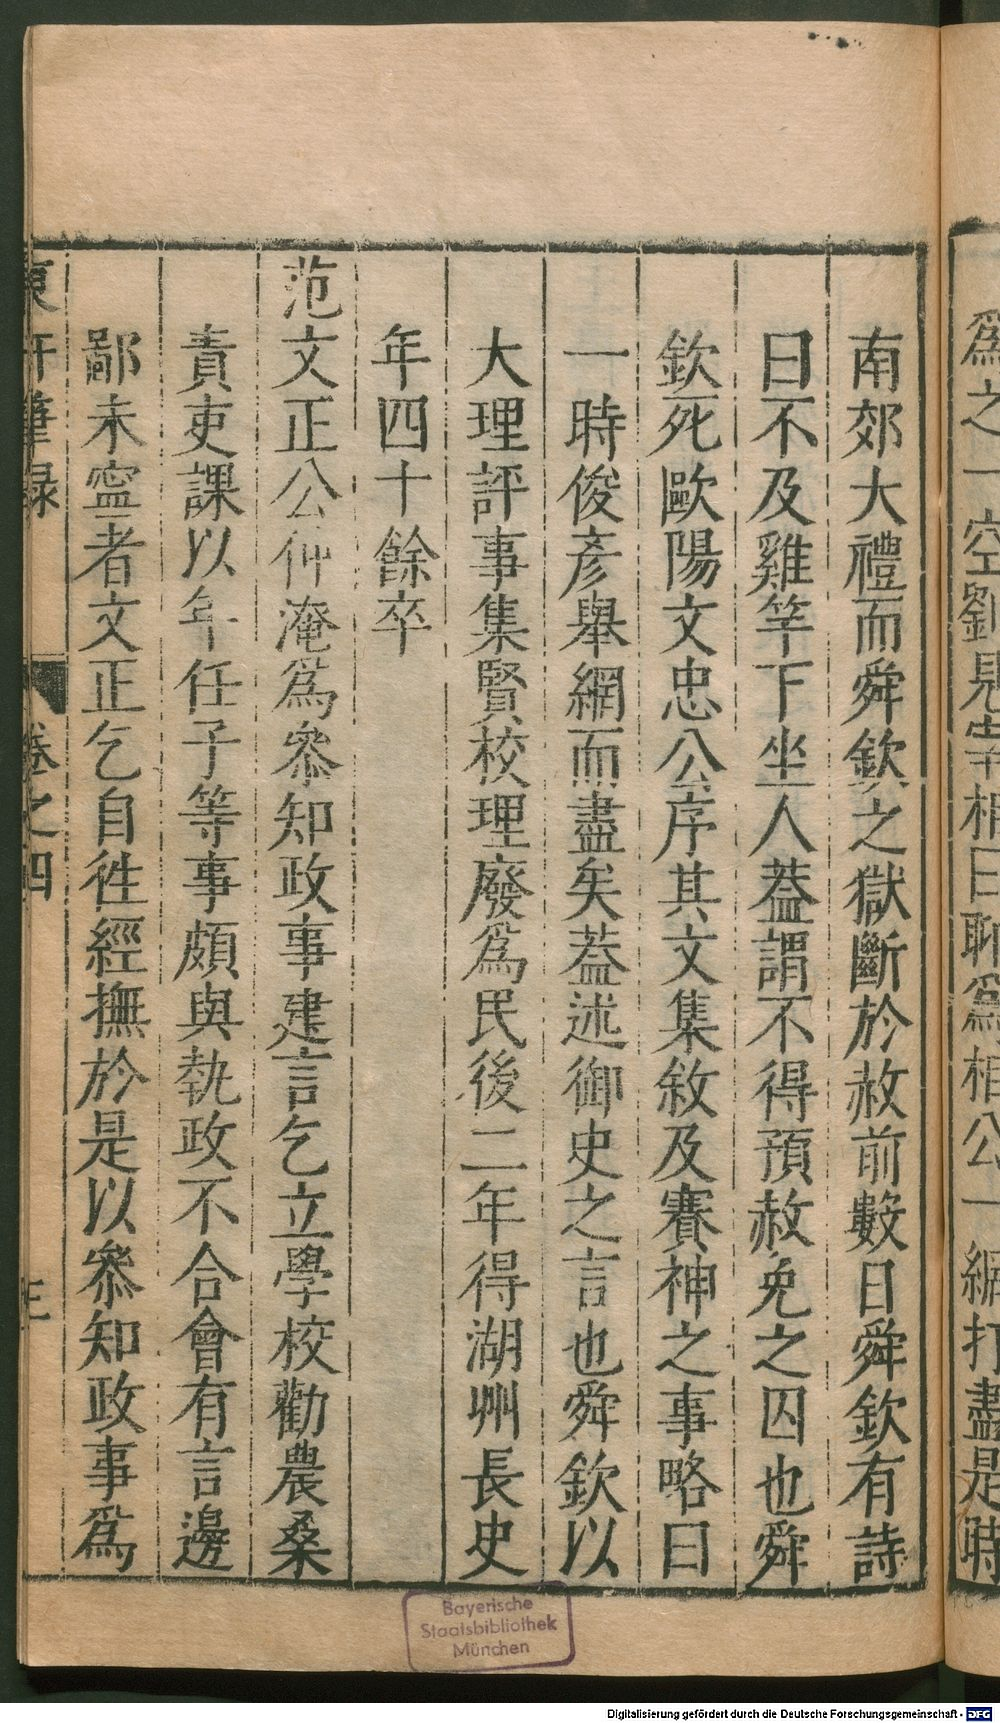 爲之一空劉見宰相曰聊爲相公一網打盡是時
南郊大禮而舜欽之獄斷於赦前數日舜欽有詩
曰不及雞竿下坐人葢謂不得預赦免之囚也舜
欽死歐陽文忠公序其文集敘及賽神之事略曰
一時俊彥舉網而盡矣葢述御史之言也舜欽以
大理評事集賢校理廢爲民後二年得湖州長史
年四十餘卒
范文正公仲淹爲參知政事建言乞立學校勸農桑
責吏課以年任子等事頗與執政不合會有言邊
鄙未寍者文正乞自徃經撫於是以參知政事爲
東軒筆録
卷之四
Bayerische
Staatsbibliothek
München
Digitalisierung gefördert durch die Deutsche Forschungsgemeinschaft - DFG